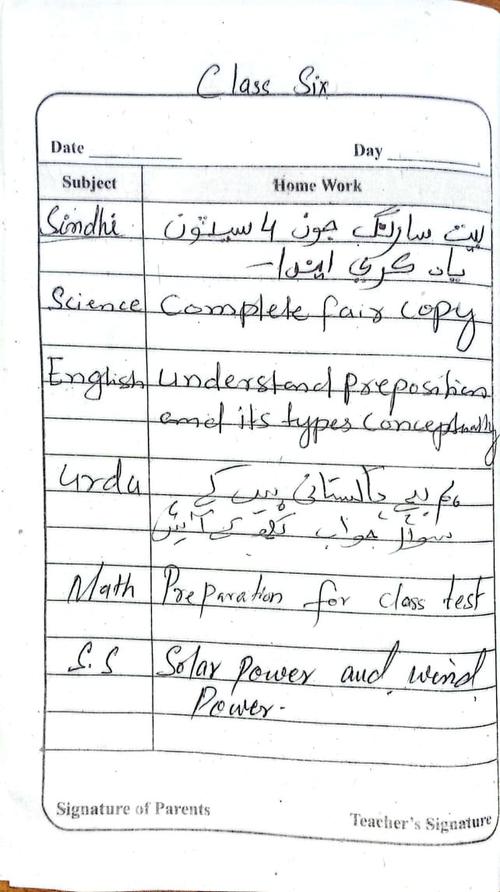 Class Six
Date
Day
Subject
Home Work
Sindhi
بيت سارنگ جون 4 سيٽون
ياد ڪري ايندا-
Science
Complete fair copy
English
Understand preposition
and its types conceptually
Urdu
ہم بچے پاکستانی ہیں کے
سوال جواب لکھ کے آئیں
Math
Preparation for class test
S.S
Solar Power and wind
Power.
Signature of Parents
Teacher's Signature